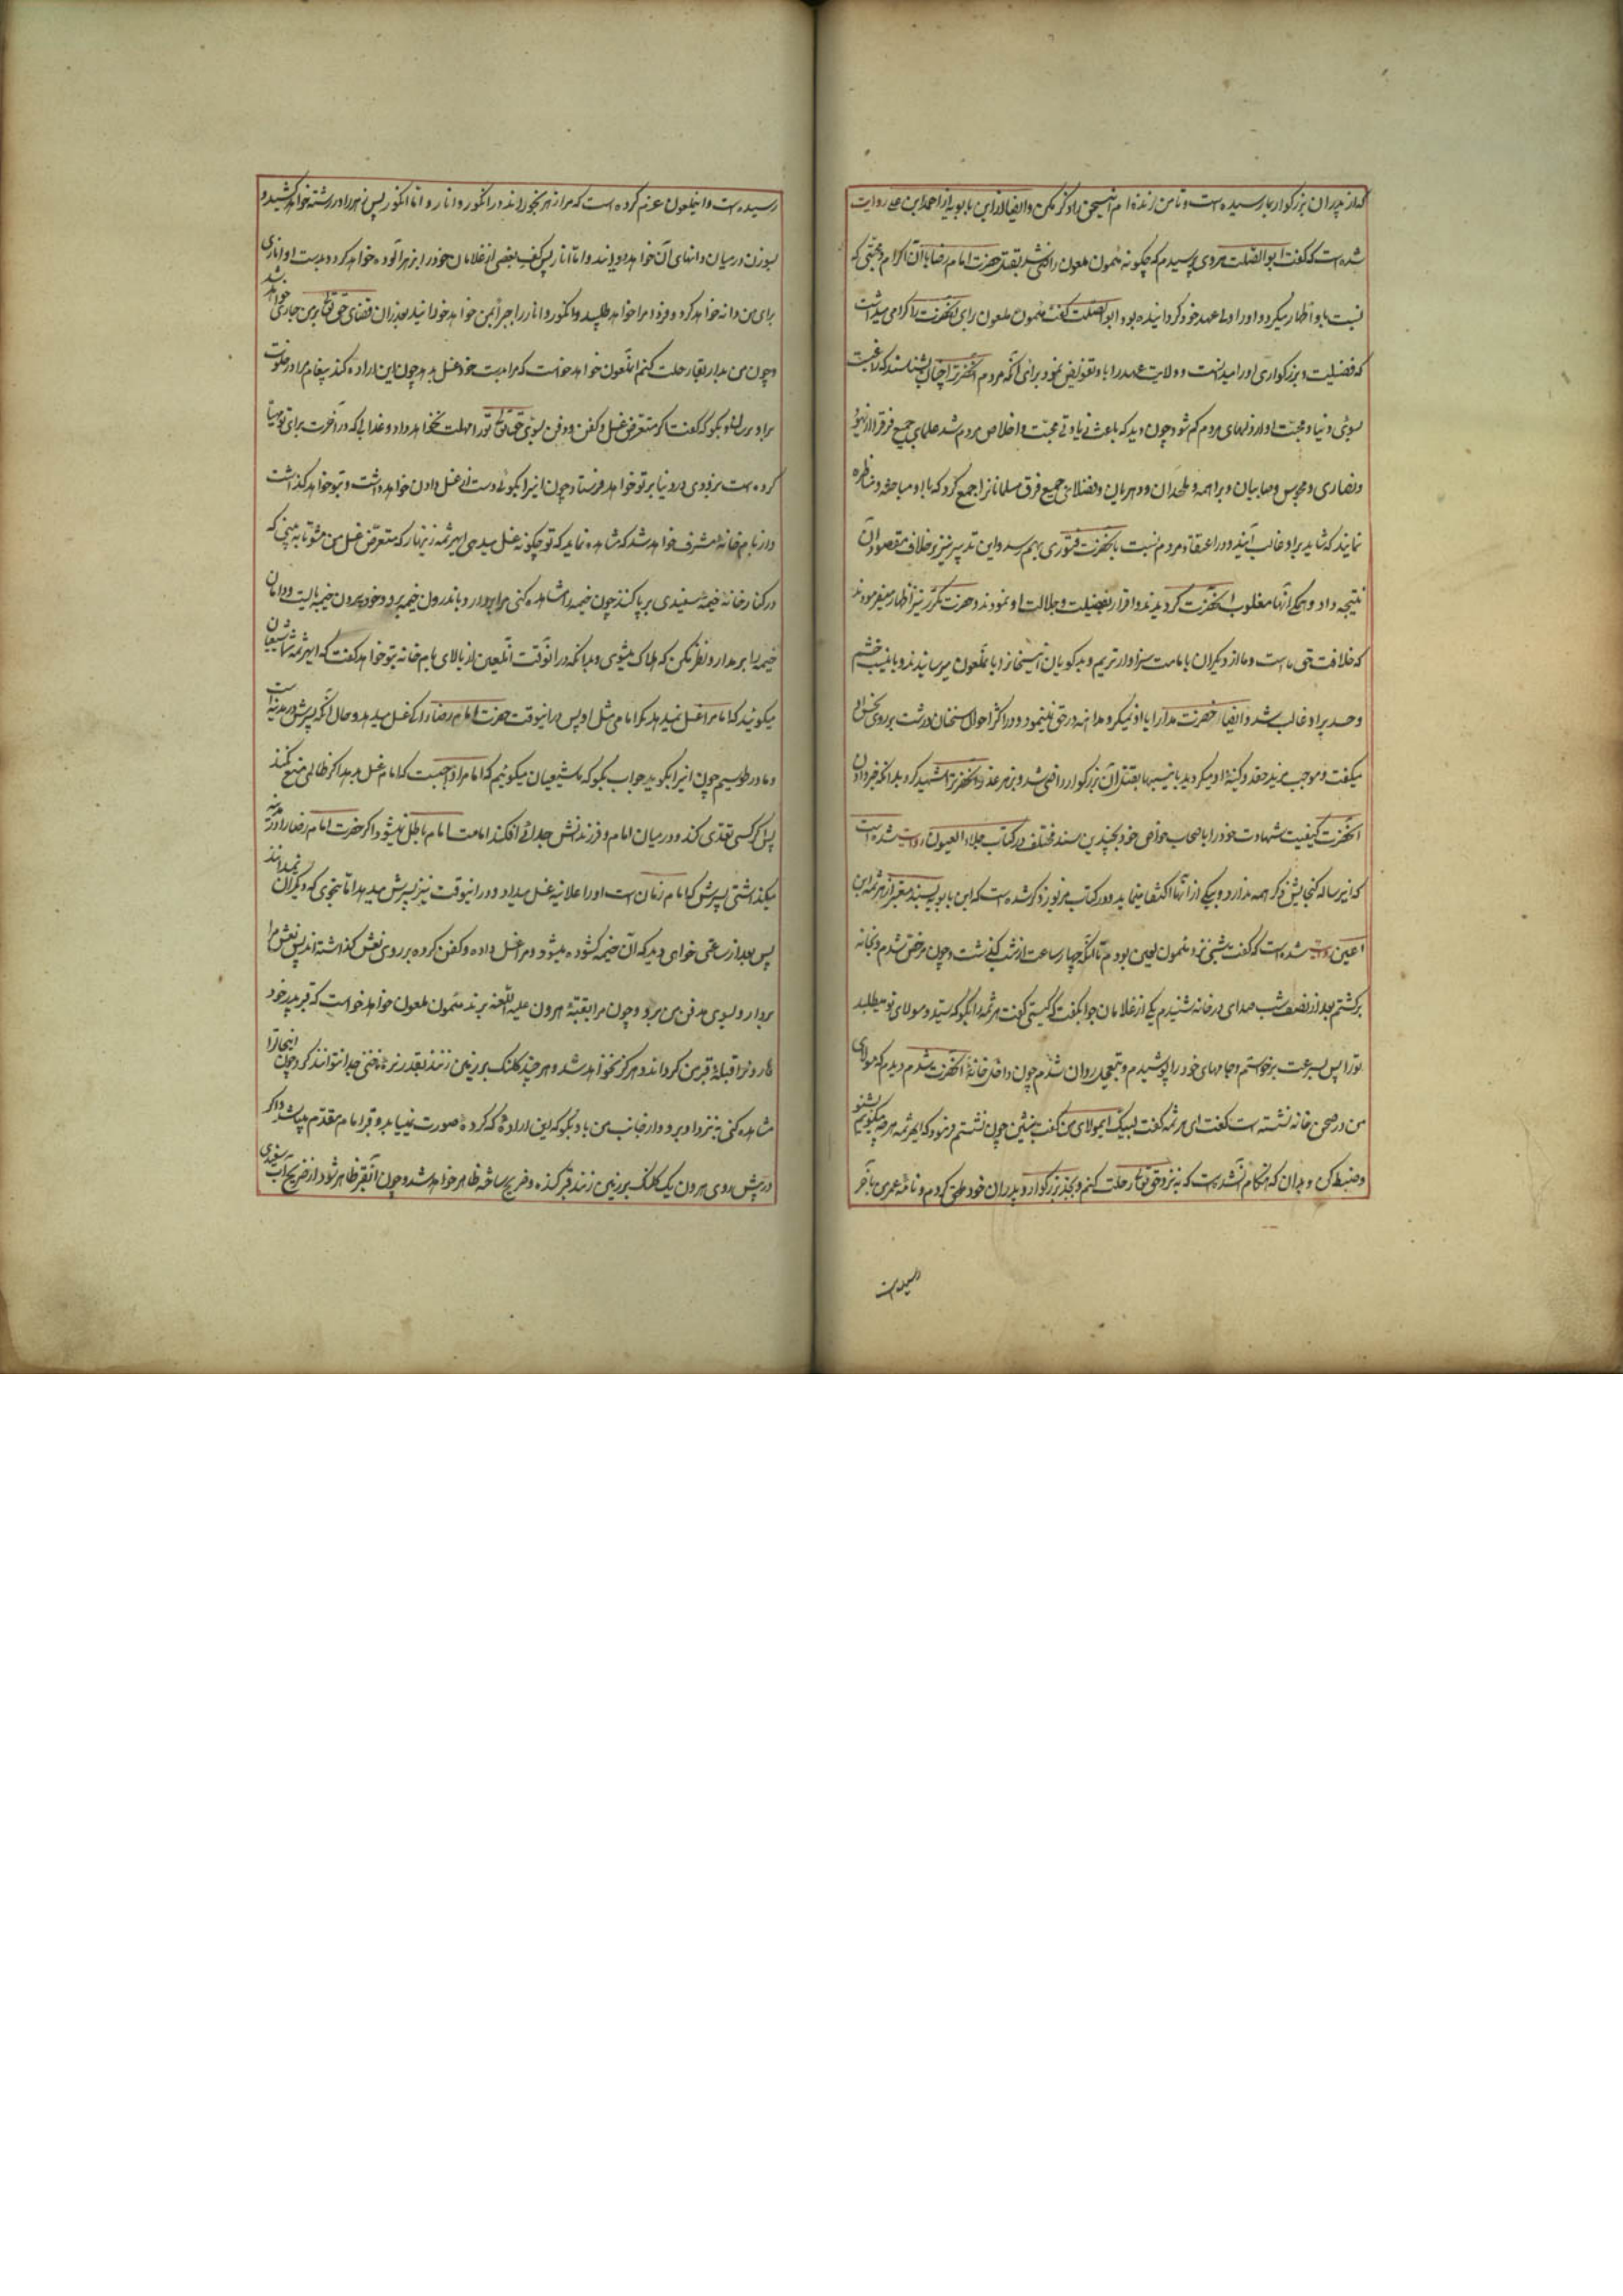 که از پدران بزرگوار بما رسیده است و تا من زنده ام این سخن را ذکر مکن و ایضا از ابن بابویه از احمد ابن علی روایت
شده است که گفت از ابو الصلت هروی پرسیدم که چگونه مأمون ملعون راضی شد بقتل حضرت امام رضا با آن اکرام و محبتی که
نسبت باو اظهار میکرد و او را ولیعهد خود گردانیده بود ابو الصلت گفت مأمون ملعون برای آنحضرت را گرامی میداشت
که فضیلت و بزرگواری او را میدانست و ولایت عهد را باو تفویض نمود برای آنکه مردم آنحضرت را چنان بشناسند که راغبست
بسوی دنیا و محبت او از دلهای مردم کم شود چون دید که باعث زیادتی محبت و اخلاص مردم شد علمای جمیع فرق را از یهود
و نصاری و مجوس و صابیان و براهمه و ملحدان و دهریان و فضلای جمیع فرق مسلمانان را جمع کرد که با او مباحثه و مناظره
نمایند که شاید بر او غالب آیند و در اعتقاد مردم نسبت بآنحضرت فتوری بهم رسد و این تدبیر نیز بر خلاف مقصود آن
نتیجه داد و همگی آنها مغلوب آنحضرت گردیدند و اقرار بفضیلت و جلالت او نمودند و حضرت مکرر نیز اظهار میفرمودند
که خلافت حق ماست و ما از دیگران بامامت سزاوارتریم و بدگویان این سخنان را بآن ملعون میرسانیدند و باین سبب خشم
و حسد بر او غالب شد و ایضا حضرت مدارا با او نمیکرد و مداهنه در حق نمینمود و در اکثر احوال سخنان درشت بر روی نحس او
میگفت و موجب مزید حقد و کینه او میگردید باین سببها بقتل آن بزرگوار راضی شد و بزهر غدر آنحضرت را شهید کرد بدانکه خبر دادن
آنحضرت کیفیت شهادت خود را باصحاب خواص خود بچندین سند مختلف در کتاب جلاء العیون روایت شده است
که این رساله گنجایش ذکر همه ندارد و بیکی از آنها اکتفا مینماید و در کتاب مزبور ذکر شده است که ابن بابویه بسند معتبر از هرثمه ابن
اعین روایت شده است که گفت شبی نزد مأمون لعین بودم تا آنکه چهار ساعت از شب گذشت و چون مرخص شدم و بخانه
برگشتم بعد از نصف شب صدای در خانه شنیدم یکی از غلامان جواب گفت که کیستی گفت هرثمه را بگو که سید و مولای تو میطلبد
تو را پس بسرعت برخواستم و جامهای خود را پوشیدم و بتعجیل روان شدم چون داخل خانهٔ آنحضرت شدم دیدم که مولای
من در صحن خانه نشسته است گفت ای هرثمه گفتم لبیک ای مولای من گفت بنشین چون نشستم فرمود که ای هرثمه هر چه میگویم بشنو
و ضبط کن و بدان که هنگام آن شده است که به نزد حق تعالی رحلت کنم و بجد بزرگوار و پدران خود ملحق گردم و نامهٔ عمر من بآخر
رسیده است
رسیده است و این ملعون عزم کرده است که مرا زهر بخوراند در انگور و انار و اما انگور پس زهر را در رشته خواهد کشید و
بسوزن در میان دانهای آن خواهد دوانید و اما انار پس کف بعضی از غلامان خود را بزهر آلوده خواهد کرد و بدست او انار
برای من دانه خواهد کرد و فردا مرا خواهد طلبید و انگور و انار را جبرا بمن خواهد خورانید بعد از آن قضای حق تعالی بر من جاری خواهد شد
و چون من بدار بقا رحلت کنم آن ملعون خواهد خواست که مرا بدست خود غسل بدهد چون این اراده کند پیغام مرا در خلوت
باو برسان و بگو که گفت اگر متعرض غسل و کفن و دفن من شوی حق تعالی تو را مهلت نخواهد داد و عذابی که در آخرت برای تو مهیا
کرده است بزودی در دنیا بر تو خواهد فرستاد چون این را بگوئی دست از غسل دادن خواهد داشت و بتو خواهد گذاشت
و از بام خانه مشرف خواهد شد که مشاهده نماید که تو چگونه غسل میدهی ای هرثمه زینهار که متعرض غسل من مشو تا به بینی که
در کنار خانه خیمهٔ سفیدی برپا کنند چون خیمه را مشاهده کنی مرا بردار و باندرون خیمه بر و خود بیرون خیمه بایست و دامان
خیمه را بر مدار و نظر مکن که هلاک میشوی و بدانکه در آنوقت آن لعین از بالای بام خانه بتو خواهد گفت که ای هرثمه شما شیعیان
میگوئید که امام را غسل نمیدهد مگر امامی مثل او پس در اینوقت حضرت امام رضا را که غسل میدهد و حال آنکه پسرش در مدینه است
و ما در طوسیم چون این را بگوید جواب بگو که ما شیعیان میگوئیم که امام را واجبست که امام غسل بدهد اگر ظالمی منع نکند
پس اگر کسی تعدی کند و در میان امام و فرزندش جدائی افکند امامت امام باطل نمیشود اگر حضرت امام رضا را در مدینه
میگذاشتی پسرش که امام زمان است او را علانیه غسل میداد و در اینوقت نیز پسرش میدهد اما بنحوی که دیگران نمیدانند
پس بعد از ساعتی خواهی دید که آن خیمه گشوده میشود و مرا غسل داده و کفن کرده بر روی نعش گذاشته اند پس نعش مرا
بردارد و بسوی مدفن من برد و چون مرا بقبهٔ هرون علیه اللعنه برند مأمون ملعون خواهد خواست که قبر پدر خود
هارون را قبلهٔ قبر من گرداند و هرگز نخواهد شد و هر چند کلنگ بر زمین زنند بقدر ریزهٔ ناخنی جدا نتوانند کرد چون اینحال را
مشاهده کنی به نزد او برو و از جانب من باو بگو که این ارادهٔ که کردهٔ صورت نمییابد و قبر امام مقدم میباشد و اگر
در پیش روی هرون یک کلنگ بر زمین زنند قبر کنده و ضریح ساخته ظاهر خواهد شد و چون آن قبر ظاهر شود از ضریح آب سفیدی